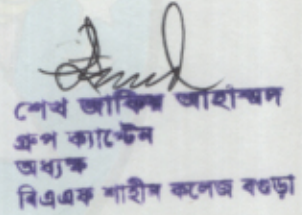 শেখ আকিল আহাম্মদ
গ্রুপ ক্যাপ্টেন
অধ্যক্ষ
বিএএফ শাহীন কলেজ বগুড়া